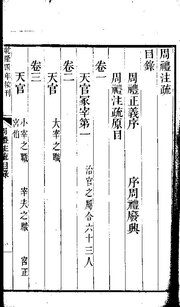 周禮注疏
目錄
周禮正義序
序周禮廢興
周禮注疏原目
卷一
天官冢宰第一
治官之屬合六十三人
卷二
天官
大宰之職
卷三
天官
小宰之職
宰夫之職
宮正
宮伯
周禮注疏目錄